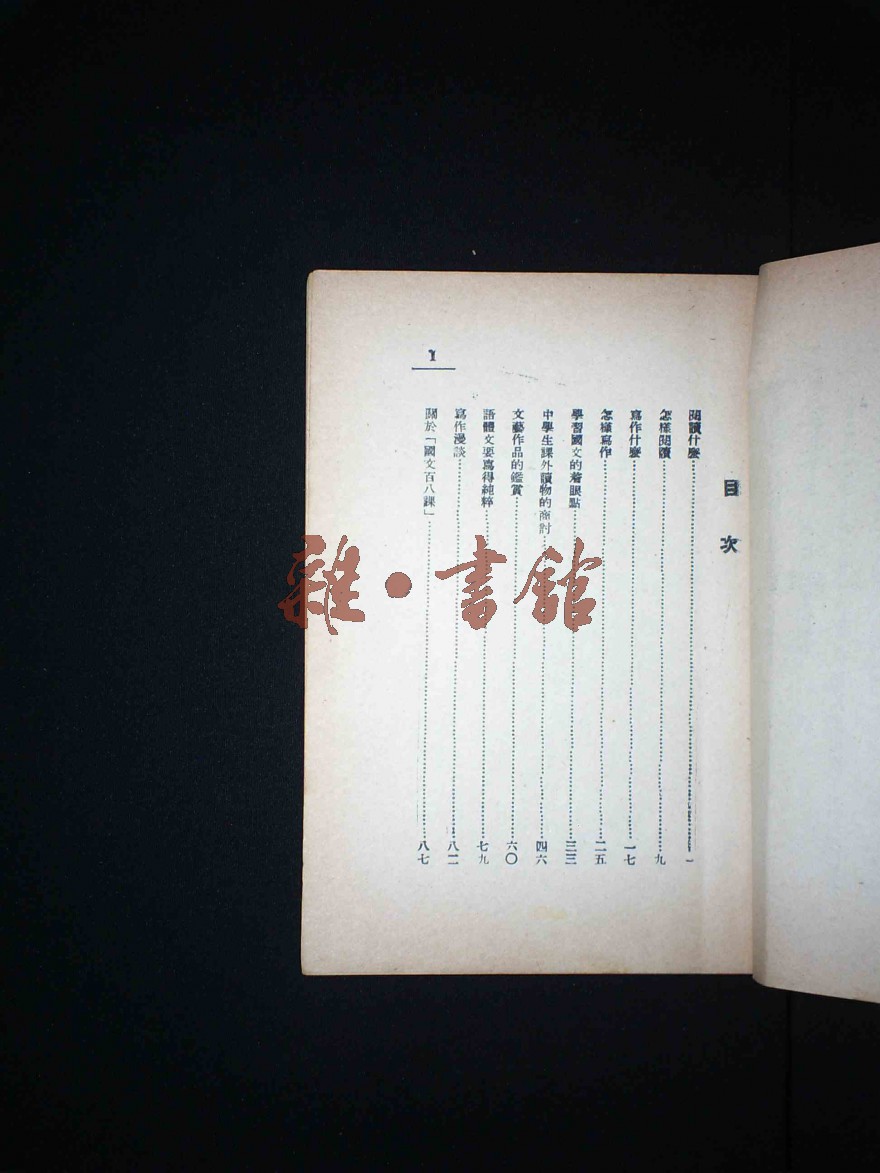 目次
閱讀什麼……一
怎樣閱讀……九
寫作什麼……一七
怎樣寫作……二五
學習國文的着眼點……三三
中學生課外讀物的商討……四六
文藝作品的鑑賞……六〇
語體文要寫得純粹……七九
寫作漫談……八二
關於「國文百八課」……八七
1
雜·書館